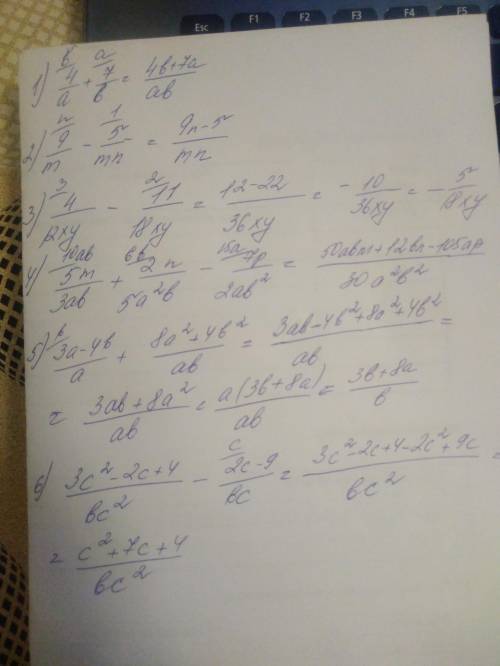 Esc F1 F2 F3 F4 F5
1) 4/a (в) + 7/в (a) = (4в+7a)/(aв)
2) 9/m (n) - 5/(mn) (1) = (9n-5)/(mn)
3) 4/(12xy) (3) - 11/(18xy) (2) = (12-22)/(36xy) = -10/(36xy) = -5/(18xy)
4) 5m/(3ab) (10ab) + 2n/(5a²b) (6b) - 7p/(2ab²) (15a) = (50abm+12bn-105ap)/(30a²b²)
5) (3a-4b)/a (b) + (8a²+4b²)/(ab) = (3ab-4b²+8a²+4b²)/(ab) =
= (3ab+8a²)/(ab) = a(3b+8a)/(ab) = (3b+8a)/b
6) (3c²-2c+4)/(bc²) - (2c-9)/(bc) (c) = (3c²-2c+4-2c²+9c)/(bc²) =
= (c²+7c+4)/(bc²)